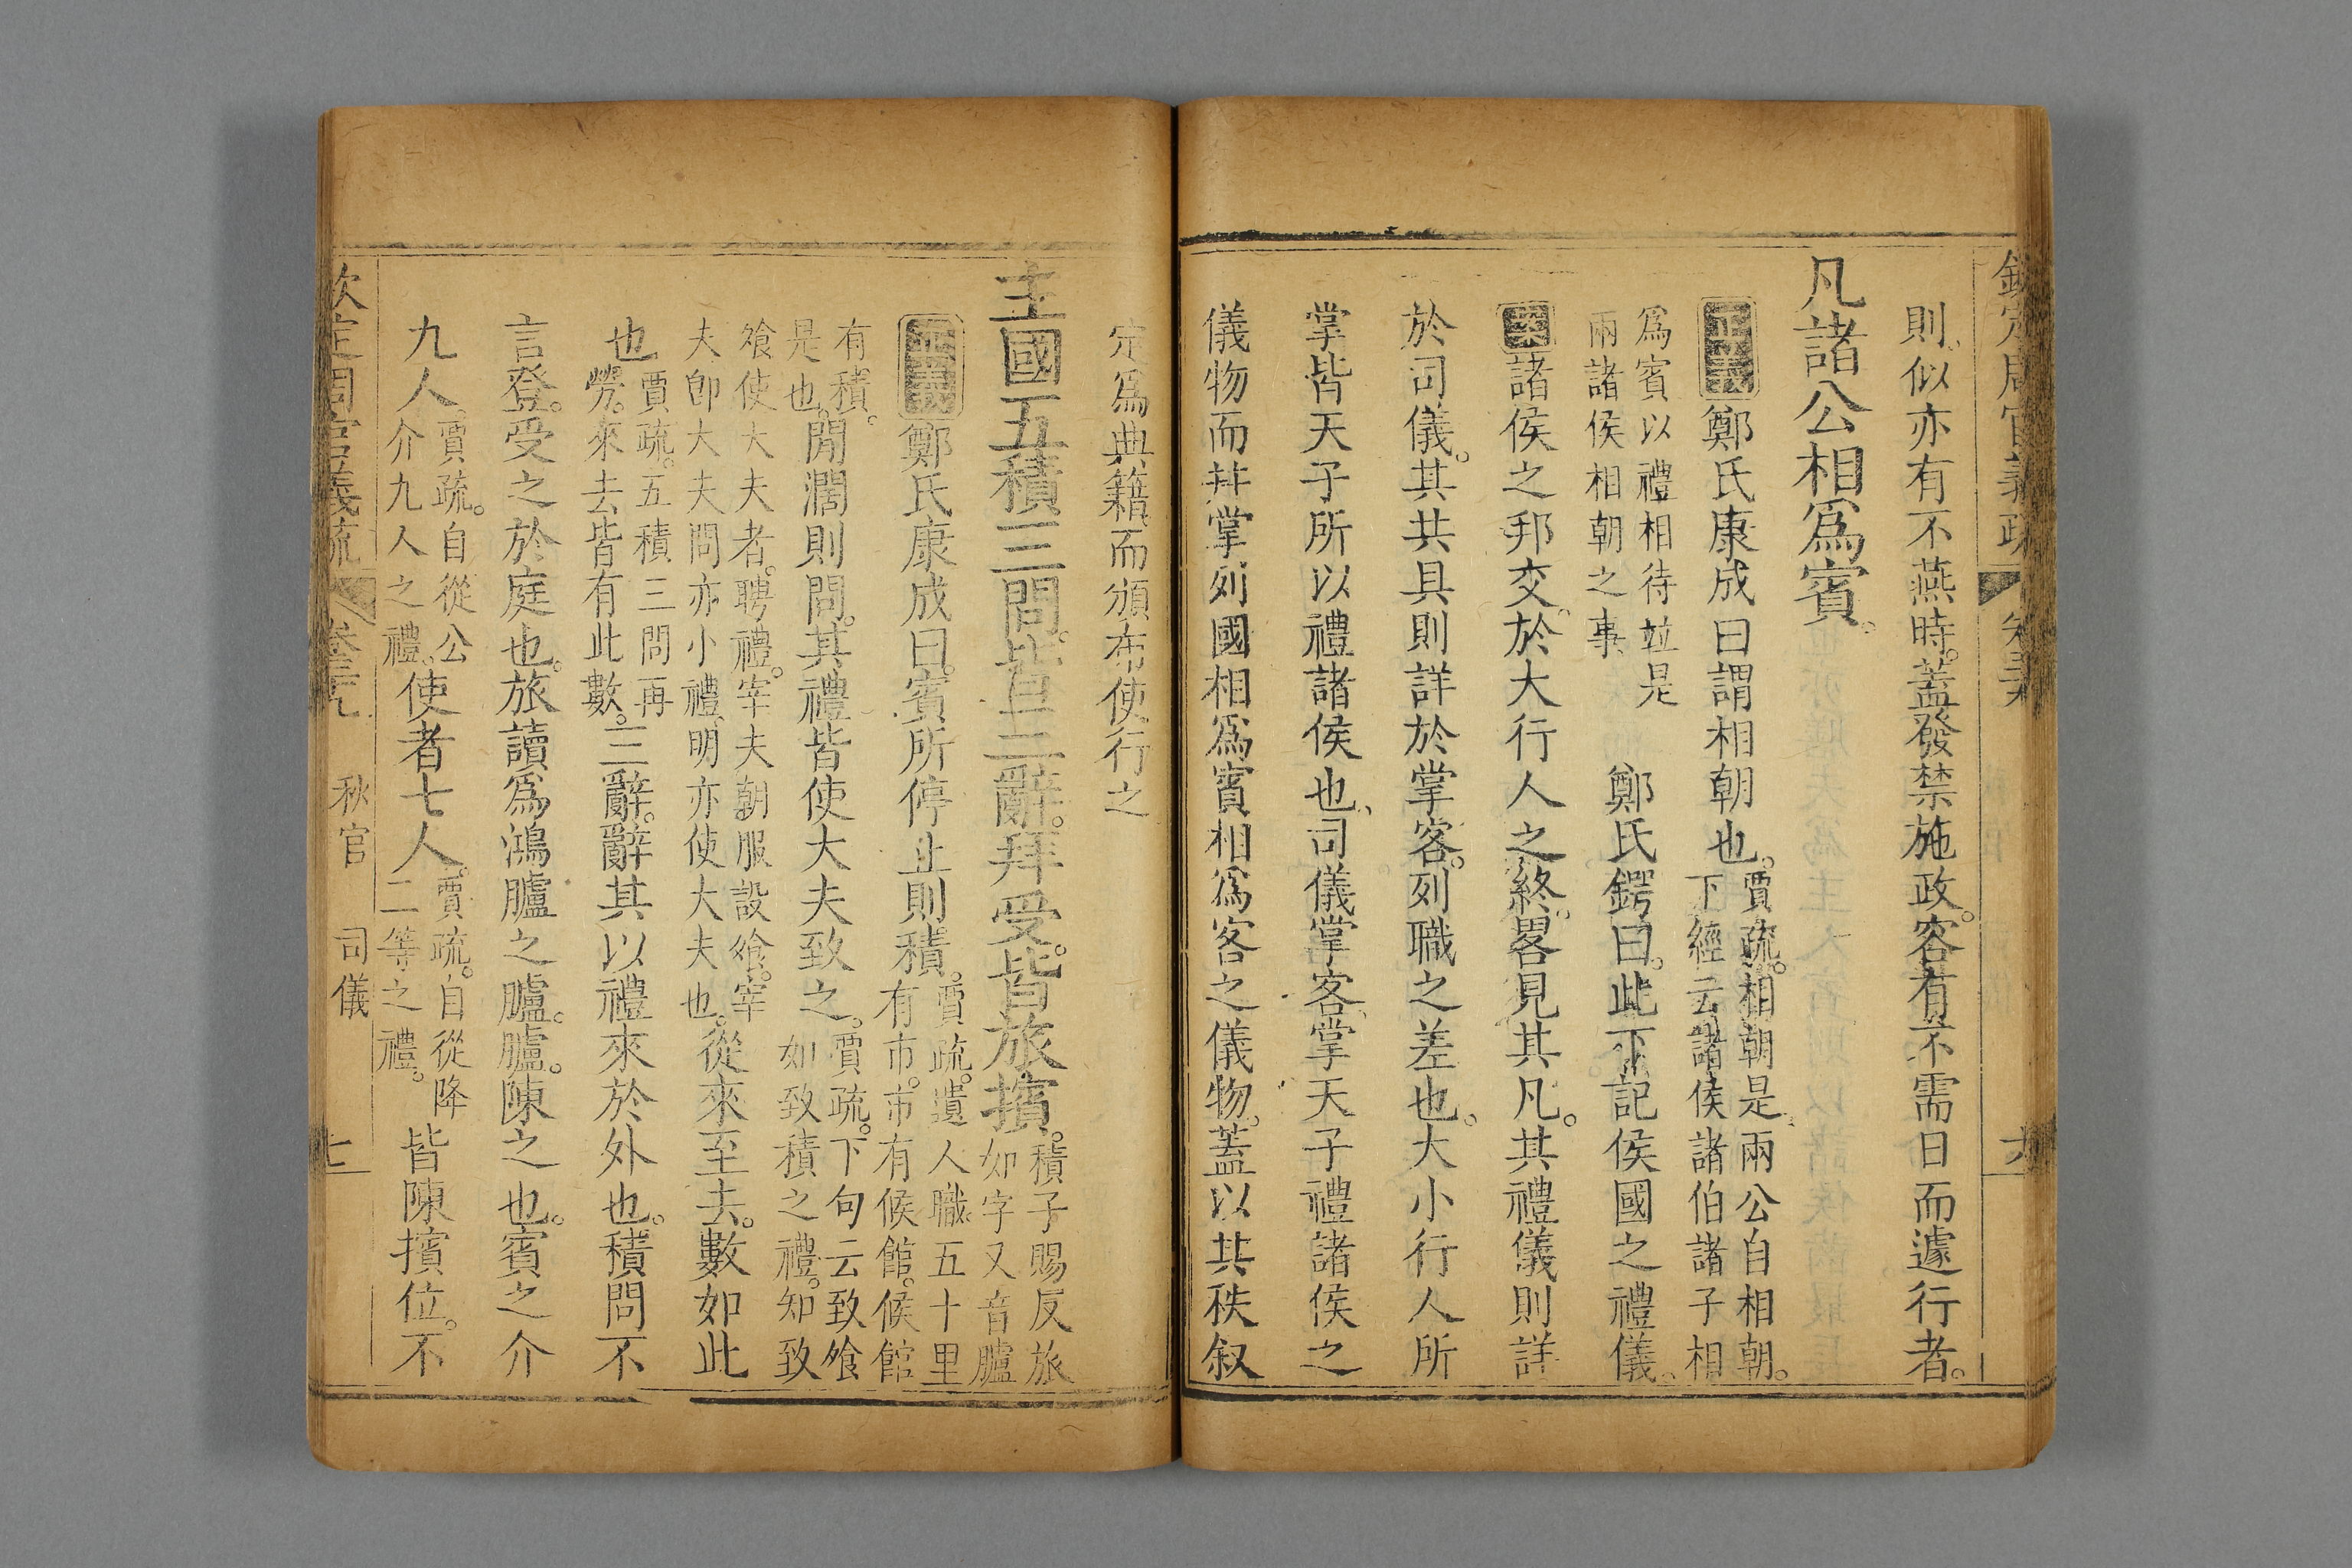 則似亦有不燕時。蓋發禁施政。容有不需日而遽行者。
凡諸公相爲賓。
正義鄭氏康成曰謂相朝也。賈疏。相朝是兩公自相朝。
下經云諸侯諸伯諸子相
爲賓以禮相待竝是
兩諸侯相朝之事
鄭氏鍔曰。此下記侯國之禮儀。
案諸侯之邦交。於大行人之終。畧見其凡。其禮儀則詳
於司儀。其共具則詳於掌客。列職之差也。大小行人所
掌皆天子所以禮諸侯也、司儀掌客、掌天子禮諸侯之
儀物而幷掌列國相爲賓相爲客之儀物。蓋以其秩叙
定爲典籍。而頒布使行之
主國五積三問。皆三辭。拜受。皆旅擯。積子賜反旅
如字又音臚
正義鄭氏康成曰。賓所停止則積。賈疏。遺人職。五十里
有市。市有候館。候館
有積。
是也。
閒濶則問。其禮皆使大夫致之。賈疏。下句云致飧
如致積之禮。知致
飧使大夫者。聘禮。宰夫朝服設飧。宰
夫卽大夫問亦小禮、明亦使大夫也。
從來至去。數如此
也賈疏。五積三問再
勞。來去皆有此數。
三辭。辭其以禮來於外也。積問不
言登。受之於庭也。旅讀爲鴻臚之臚。臚。陳之也。賓之介
九人。賈疏。自從公
介九人之禮。
使者七人。賈疏。自從降
二等之禮。
皆陳擯位。不
欽定周官義疏
秋官 司儀
七